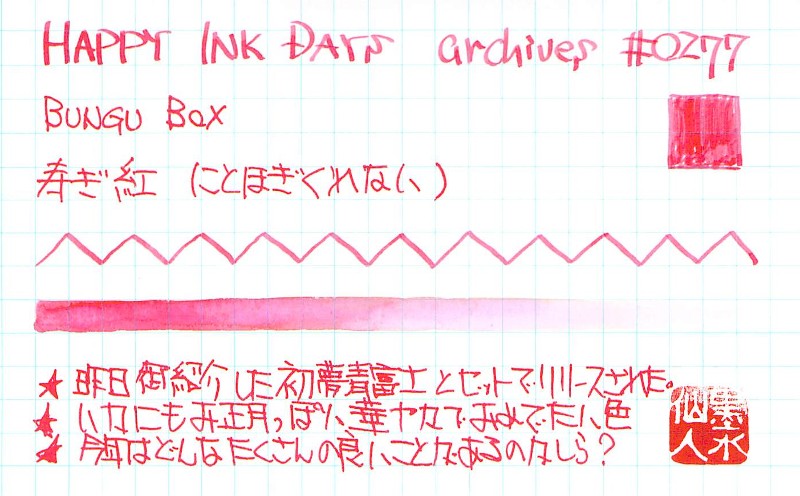 HAPPY INK DAYS archives #0277
BUNGU BOX
寿ぎ紅 (ことほぎくれない)
★ 昨日御紹介した初夢青富士とセットでリリースされた。
★ いかにもお正月っぽい華やかでおめでたい色
★ 今年はどんなたくさんの良いことがあるのかしら?
墨水
仙人